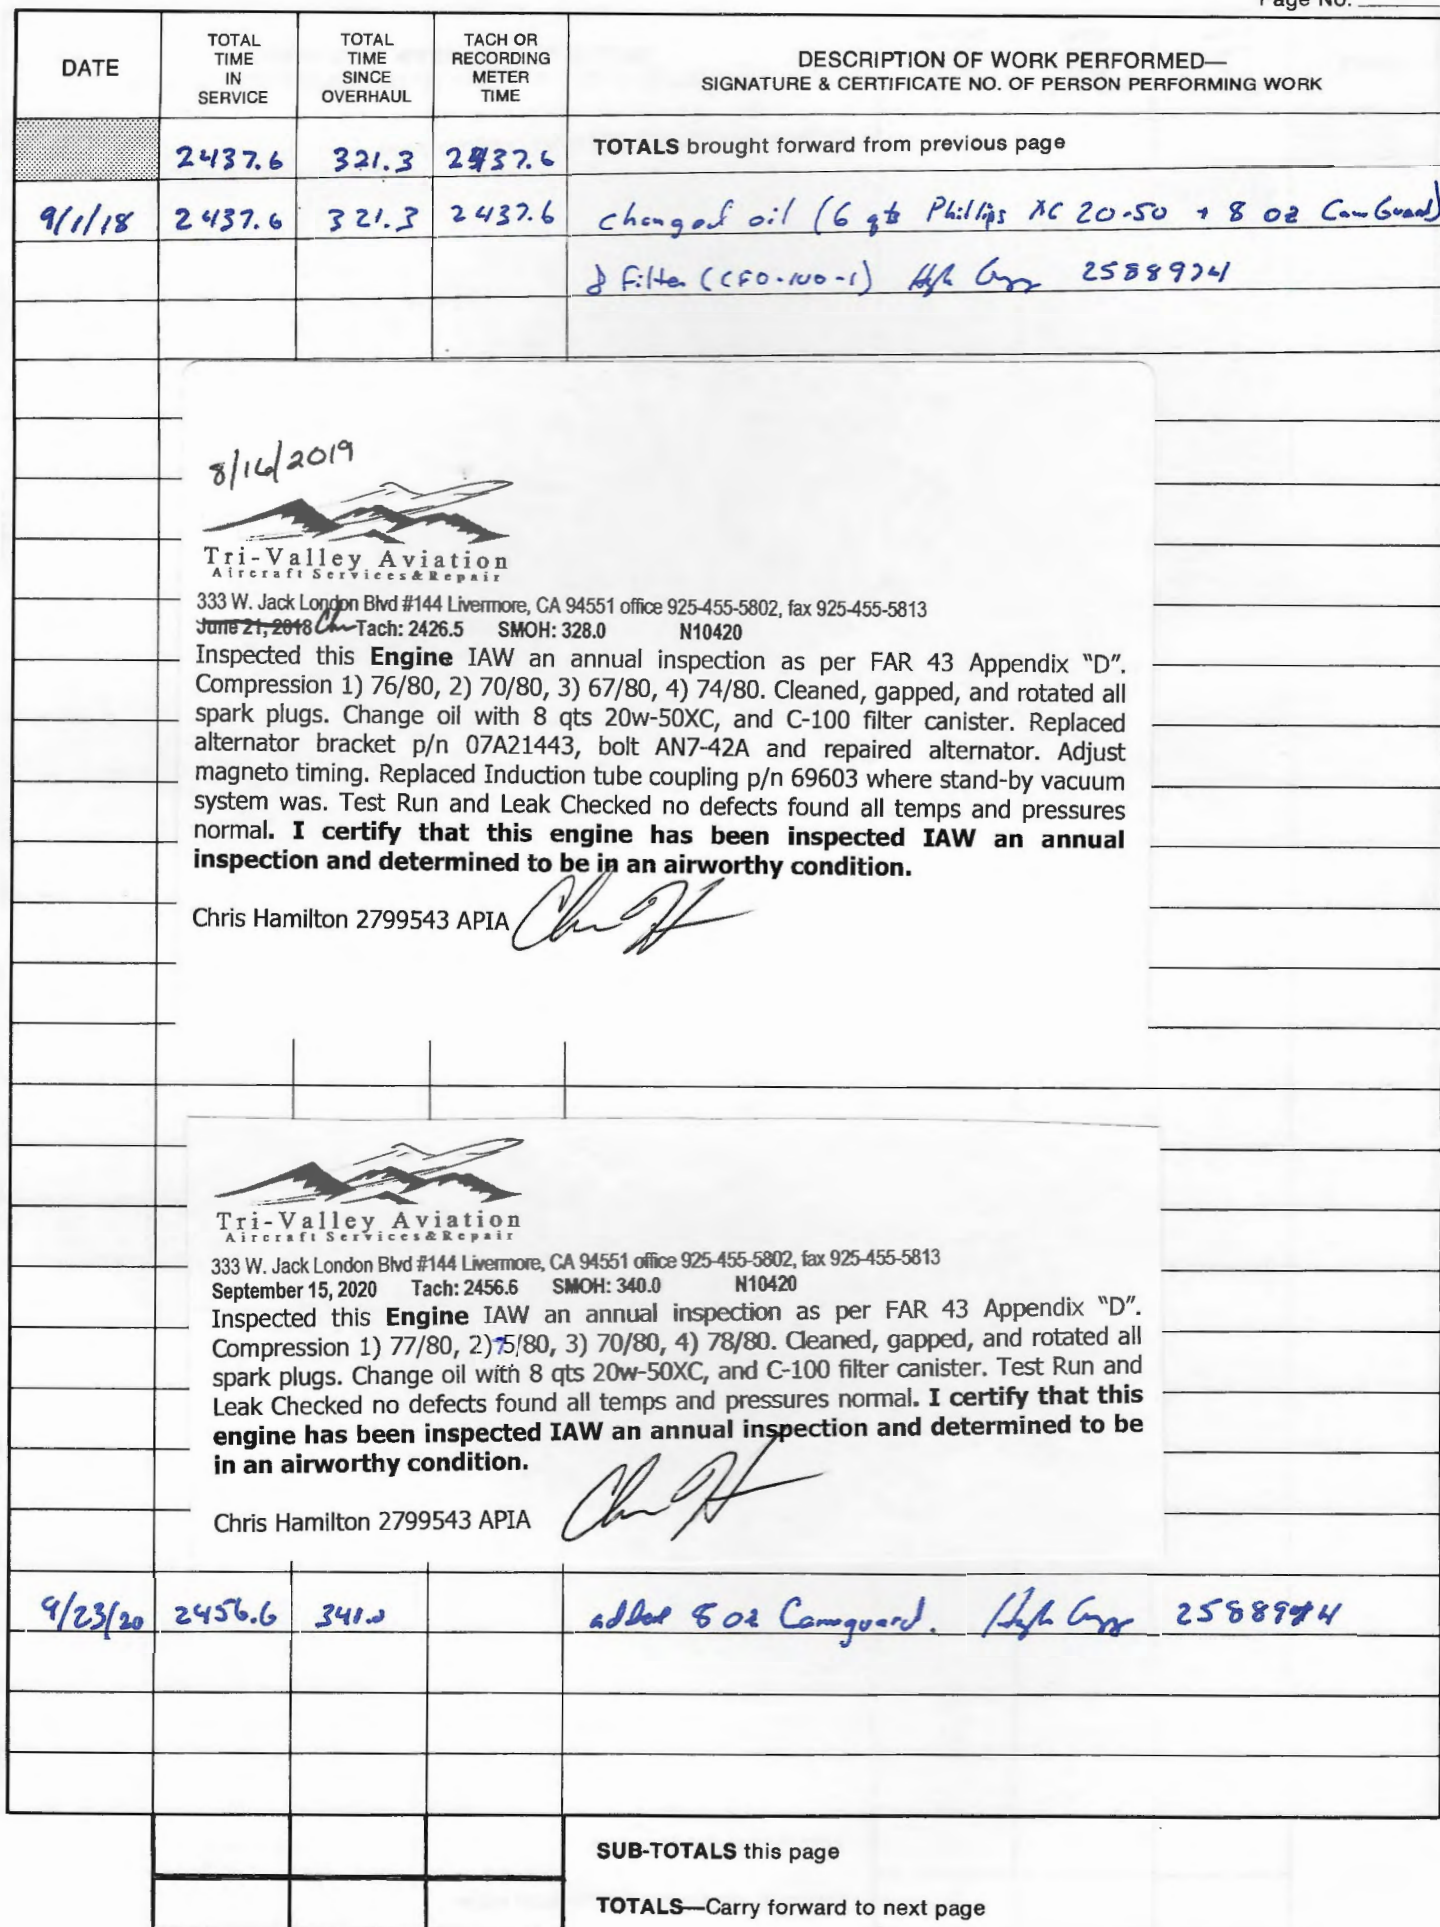 Page No.
DATE
TOTAL TIME IN SERVICE
TOTAL TIME SINCE OVERHAUL
TACH OR RECORDING METER TIME
DESCRIPTION OF WORK PERFORMED—
SIGNATURE & CERTIFICATE NO. OF PERSON PERFORMING WORK
2437.6 321.3 2437.6 TOTALS brought forward from previous page
9/1/18 2437.6 321.3 2437.6 changed oil (6 qts Phillips XC 20-50 + 8 oz CamGuard)
& Filter (CFO-100-1) 2588974
8/16/2019
Tri-Valley Aviation
Aircraft Services & Repair
333 W. Jack London Blvd #144 Livermore, CA 94551 office 925-455-5802, fax 925-455-5813
June 21, 2018 Tach: 2426.5 SMOH: 328.0 N10420
Inspected this Engine IAW an annual inspection as per FAR 43 Appendix “D”.
Compression 1) 76/80, 2) 70/80, 3) 67/80, 4) 74/80. Cleaned, gapped, and rotated all
spark plugs. Change oil with 8 qts 20w-50XC, and C-100 filter canister. Replaced
alternator bracket p/n 07A21443, bolt AN7-42A and repaired alternator. Adjust
magneto timing. Replaced Induction tube coupling p/n 69603 where stand-by vacuum
system was. Test Run and Leak Checked no defects found all temps and pressures
normal. I certify that this engine has been inspected IAW an annual
inspection and determined to be in an airworthy condition.
Chris Hamilton 2799543 APIA
Tri-Valley Aviation
Aircraft Services & Repair
333 W. Jack London Blvd #144 Livermore, CA 94551 office 925-455-5802, fax 925-455-5813
September 15, 2020 Tach: 2456.6 SMOH: 340.0 N10420
Inspected this Engine IAW an annual inspection as per FAR 43 Appendix “D”.
Compression 1) 77/80, 2) 75/80, 3) 70/80, 4) 78/80. Cleaned, gapped, and rotated all
spark plugs. Change oil with 8 qts 20w-50XC, and C-100 filter canister. Test Run and
Leak Checked no defects found all temps and pressures normal. I certify that this
engine has been inspected IAW an annual inspection and determined to be
in an airworthy condition.
Chris Hamilton 2799543 APIA
9/23/20 2456.6 341.0 added 8 oz Camguard. 2588974
SUB-TOTALS this page
TOTALS—Carry forward to next page